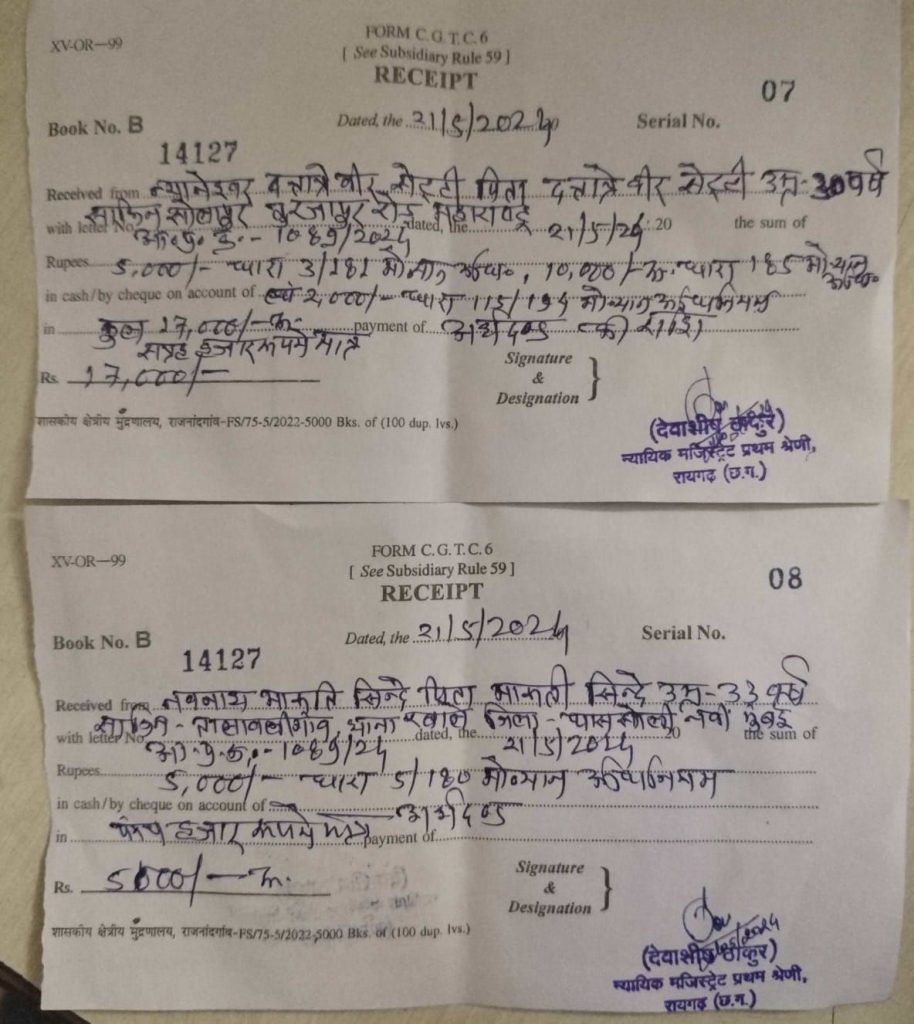 XV-OR—99
FORM C.G.T.C.6
[ See Subsidiary Rule 59 ]
RECEIPT
07
Book No. B
Dated, the 21/5/2024
Serial No.
14127
Received from दत्तात्रे वीर सेट्टी पिता दत्तात्रे वीर सेट्टी उम्र-30 वर्ष
साकिन सोलापुर रोड महाराष्ट्र
with letter No. dated, the 21/5/24 20 the sum of
Rupees 5,000/- धारा 3/181 10,000/- रू. धारा
in cash/by cheque on account of 2,000/- धारा
in कुल 17,000/- रू. payment of अर्थदण्ड की राशि
सत्रह हजार रूपये मात्र
Rs. 17,000/-
Signature
&
Designation
(देवाशीष ठाकुर)
न्यायिक मजिस्ट्रेट प्रथम श्रेणी,
रायगढ़ (छ.ग.)
शासकीय क्षेत्रीय मुद्रणालय, राजनांदगांव-FS/75-5/2022-5000 Bks. of (100 dup. lvs.)
XV-OR—99
FORM C.G.T.C.6
[ See Subsidiary Rule 59 ]
RECEIPT
08
Book No. B
Dated, the 21/5/2024
Serial No.
14127
Received from नवनाथ मारूति सिन्दे पिता मारूती सिन्दे उम्र-33 वर्ष
साकिन - थाना जिला - नवी मुंबई
with letter No. dated, the 21/5/2024 20 the sum of
Rupees 5,000/- धारा 5/180 मोव्यान अधिनियम
in cash/by cheque on account of अर्थदण्ड
in पांच हजार रूपये मात्र payment of
Rs. 5000/- रू.
Signature
&
Designation
(देवाशीष ठाकुर)
न्यायिक मजिस्ट्रेट प्रथम श्रेणी,
रायगढ़ (छ.ग.)
शासकीय क्षेत्रीय मुद्रणालय, राजनांदगांव-FS/75-5/2022-5000 Bks. of (100 dup. lvs.)